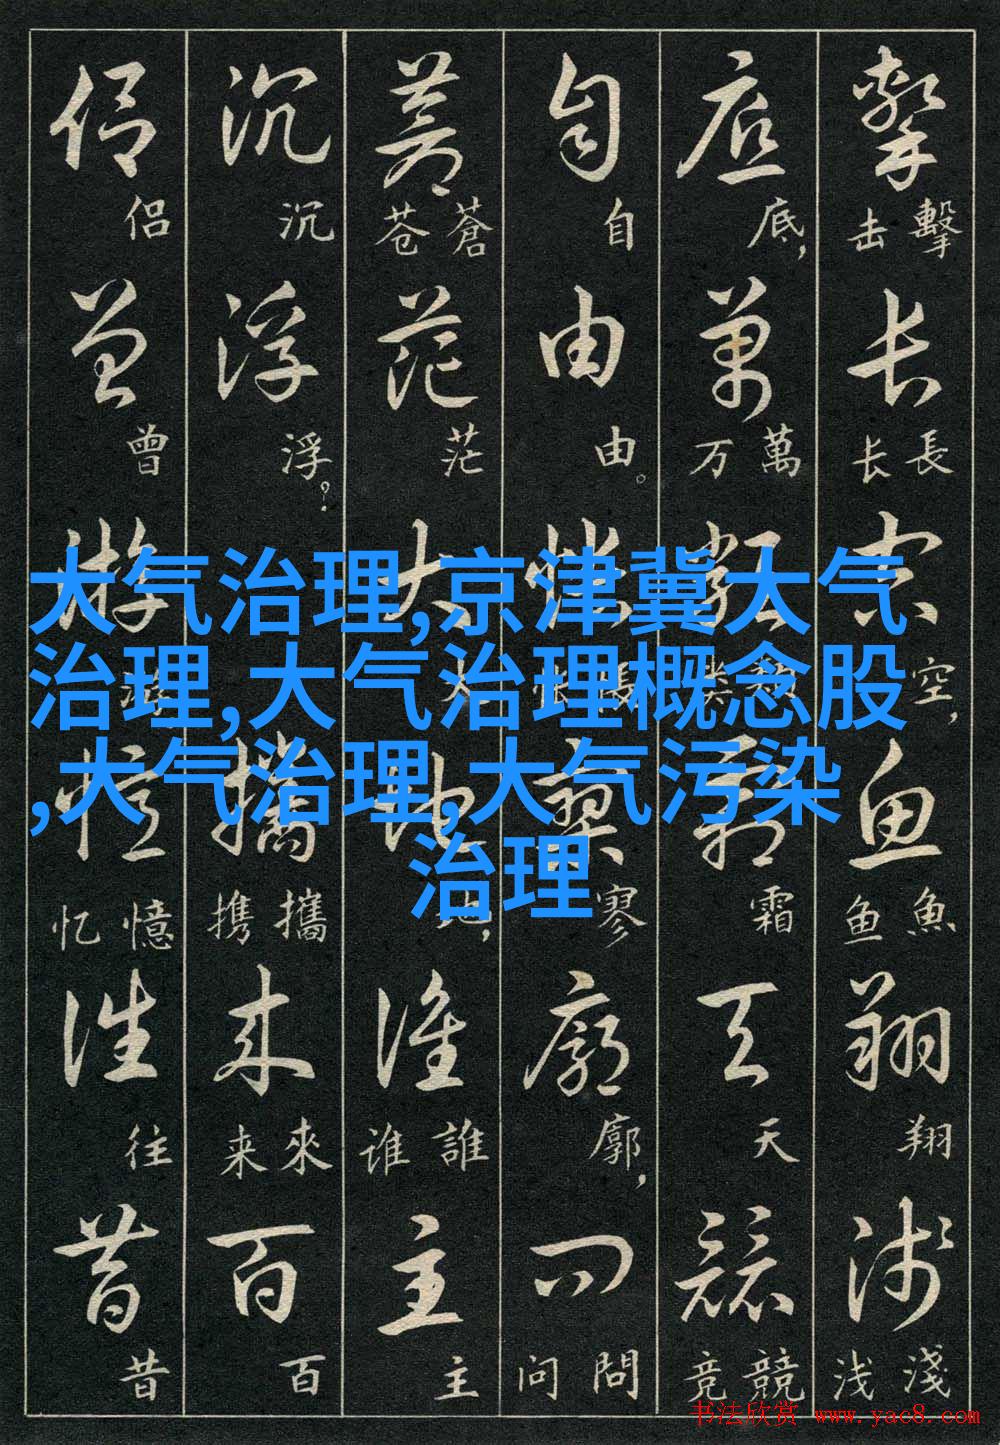 大气治理,京津冀大气
治理,大气治理概念股
,大气治理,大气污染
治理
擊 擊 击 长 長 长 空 空, 鱼 魚 鱼 翔 翔 淺 淺 浅
底 底, 萬 萬 万 類 霜 霜 天 天 競 競 竞
自 自 由 由。 悵 寥 寥 廓 廓, 問 問 问
蒼 蒼 苍 茫 茫 大 大 地 地, 誰 誰 谁 主 主
沉 沉 浮 浮? 攜 攜 携 來 來 来 百 百
侣 侣 曾 曾 游 游 憶 憶 忆 往 往 昔 昔
书法欣赏 www.yac8.com